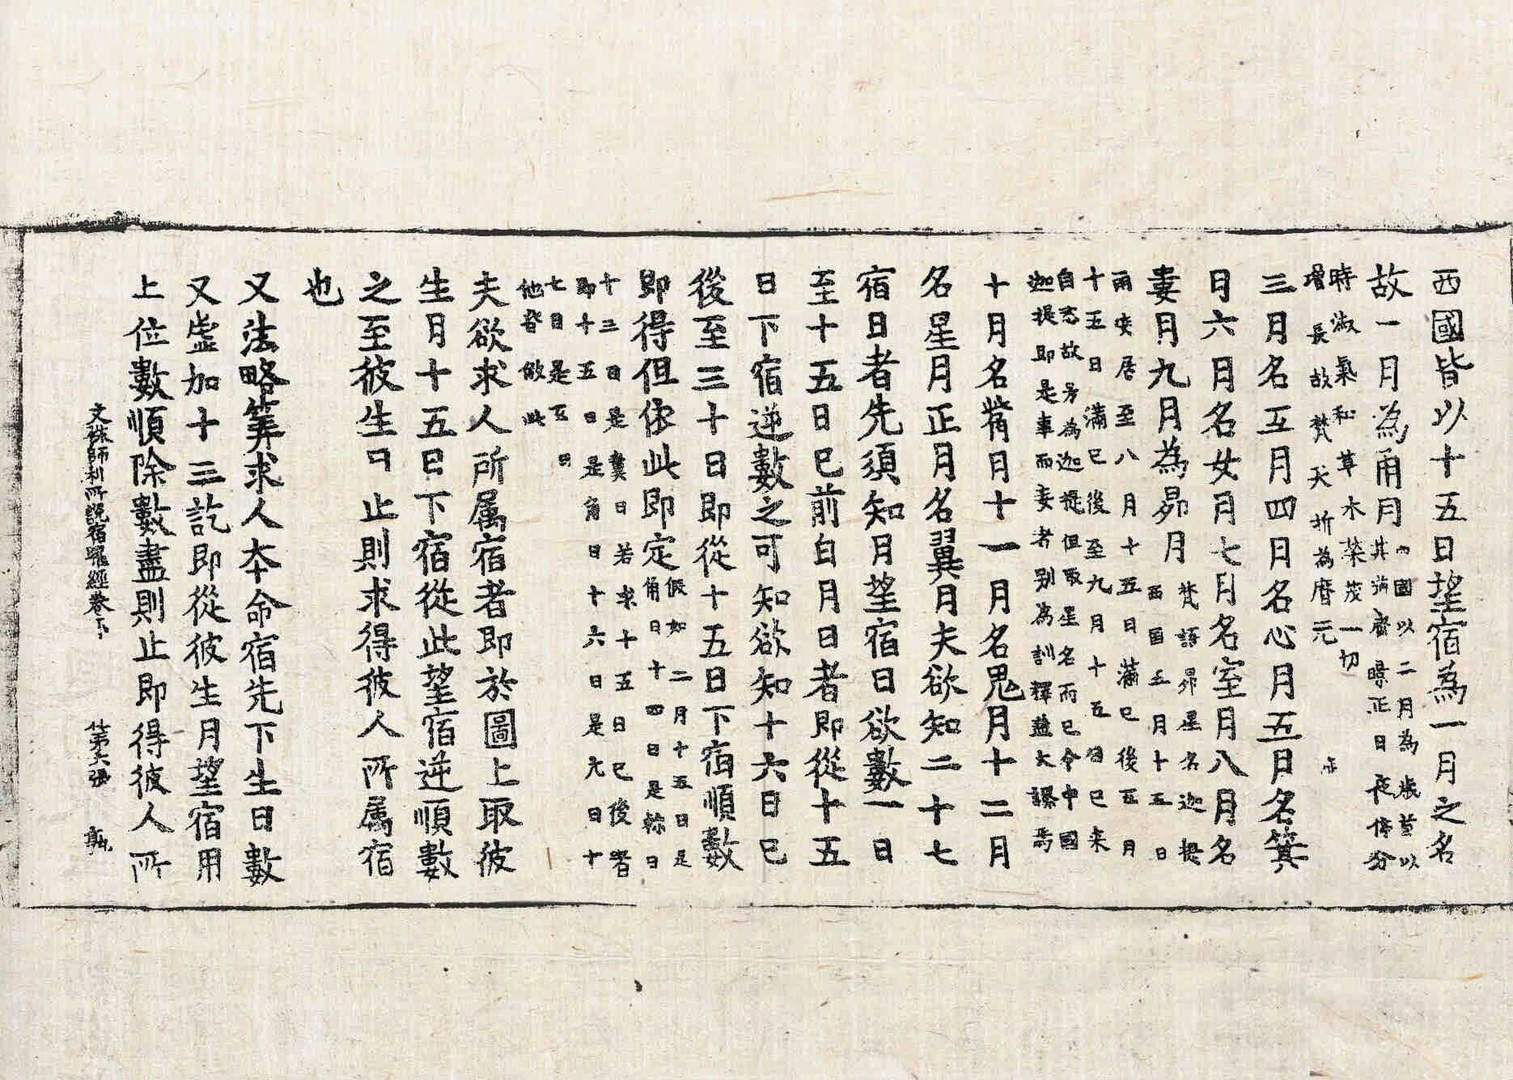 西國皆以十五日望宿為一月之名
故一月為角月西國以二月為歲首以其道齊景正日夜停分
時淑氣和草木榮茂一切
增長故梵天折為曆元
三月名互月四日名心月五日名箕
日六月名女月七月名室月八月名
婁月九月為昴月梵語昴星名迦提西国五月十五日
雨安居至八月十五日滿已後五月
十五日滿已後至九月十五日已来
自恣故号為迦提但取星名而已今中國
迦提即是事而妄者别為訓釋蓋大謬焉
十月名觜月十一月名鬼月十二月
名星月正月名翼月夫欲知二十七
宿日者先須知月望宿日欲數一日
至十五日已前白月日者即從十五
日下宿逆數之可知欲知十六日已
後至三十日即從十五日下宿順數
即得但依此即定假如二月十五日是角日十四日是軫日
十三日是翼日若求十五日已後者
即十五日是角日十六日是亢日十
七日是互日
他皆倣此
夫欲求人所属宿者即於圖上取彼
生月十五日下宿從此望宿逆順數
之至彼生日止則求得彼人所属宿
也
又法略筭求人本命宿先下生日數
又虛加十三訖即從彼生月望宿用
上位數順除數盡則止即得彼人所
文殊師利所說宿曜經卷下 第六張